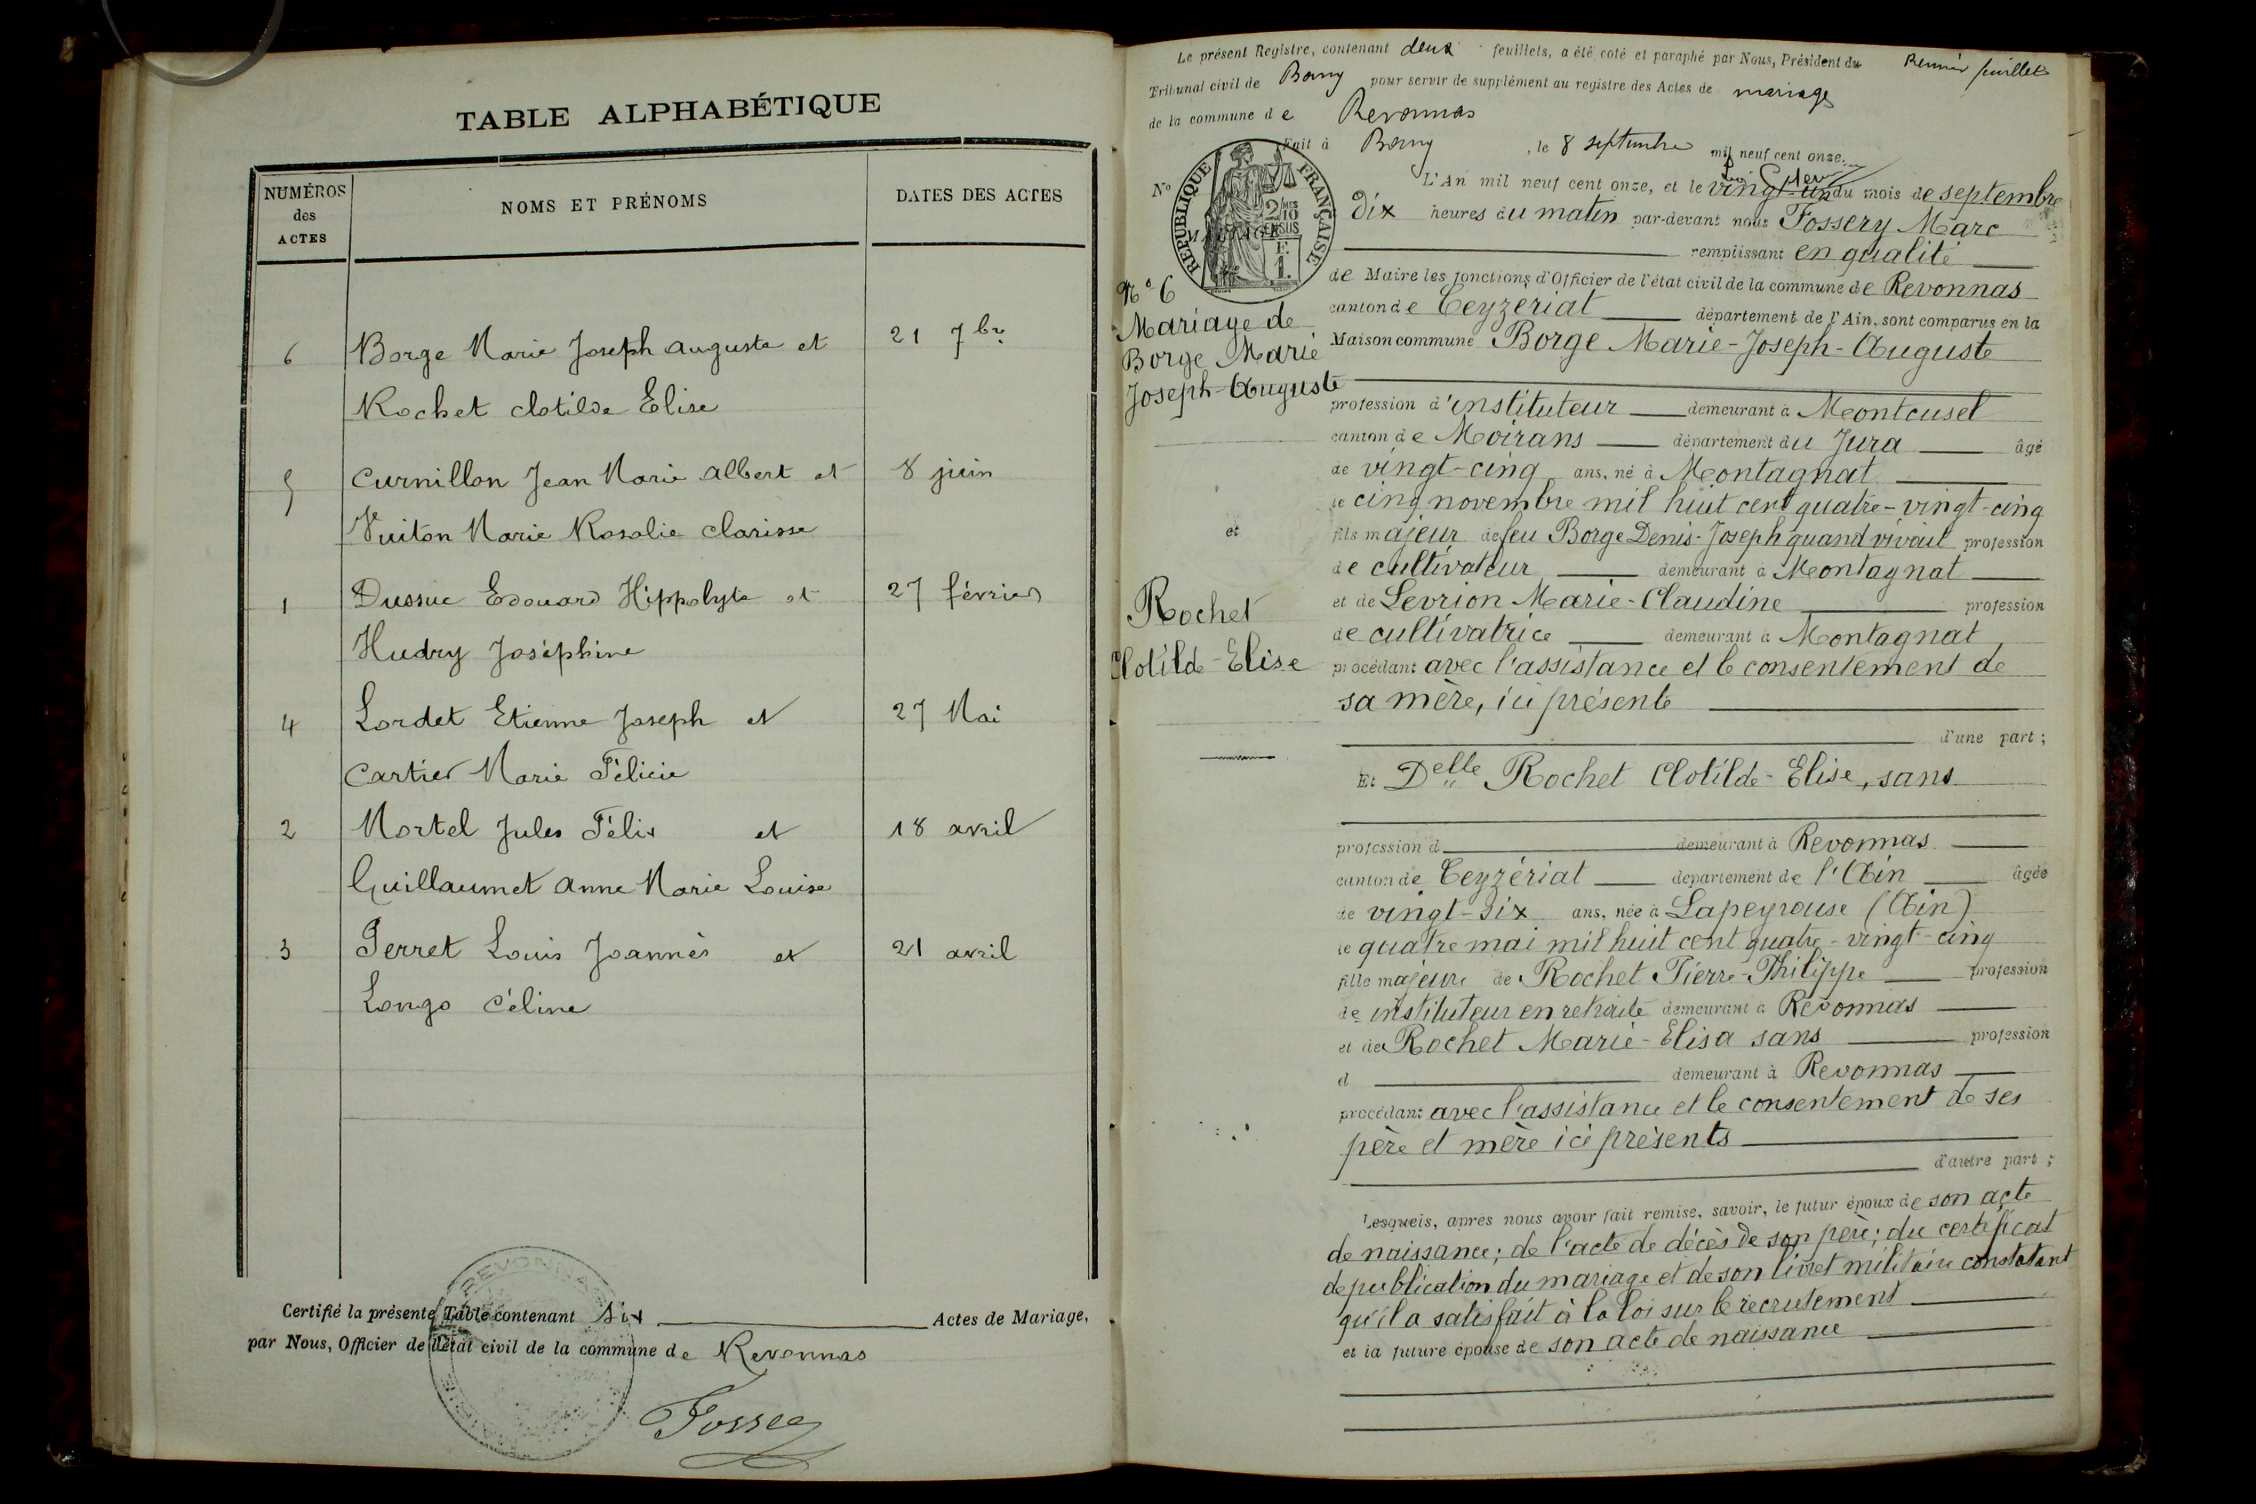 TABLE ALPHABÉTIQUE
NUMÉROS des ACTES
NOMS ET PRÉNOMS
DATES DES ACTES
6 Borge Marie Joseph Auguste et 21 7bre
Rochet Clotilde Elise
5 Curnillon Jean Marie Albert et 8 juin
Vuiton Marie Rosalie Clarisse
1 Dussuc Edouard Hippolyte et 27 février
Hudry Joséphine
4 Lordet Etienne Joseph et 27 Mai
Cartier Marie Félicie
2 Mortel Jules Félix et 18 avril
Guillaumet Anne Marie Louise
3 Perret Louis Joannès et 21 avril
Longo Céline
Certifié la présente Table contenant Six Actes de Mariage,
par Nous, Officier de l'état civil de la commune de Revonnas
Fossery
REVONNAS
Le présent Registre, contenant deux feuillets, a été coté et paraphé par Nous, Président du
Premier feuillet
Tribunal civil de Bourg pour servir de supplément au registre des Actes de mariage
de la commune de Revonnas
Fait à Bourg, le 8 septembre mil neuf cent onze.
RÉPUBLIQUE FRANÇAISE
2/10 EN SUS
F. 1.
No
L'An mil neuf cent onze, et le vingt-un du mois de septembre
Dix heures du matin par-devant nous Fossery Marc
remplissant en qualité
de Maire les fonctions d'Officier de l'état civil de la commune de Revonnas
canton de Ceyzeriat département de l'Ain, sont comparus en la
Maison commune Borge Marie-Joseph-Auguste
No 6
Mariage de
Borge Marie
Joseph-Auguste
et
Rochet
Clotilde-Elise
profession d'instituteur demeurant à Montcusel
canton de Moirans département du Jura âgé
de vingt-cinq ans, né à Montagnat
le cinq novembre mil huit cent quatre-vingt-cinq
fils majeur de feu Borge Denis-Joseph quand vivait profession
de cultivateur demeurant à Montagnat
et de Levrion Marie-Claudine profession
de cultivatrice demeurant à Montagnat
procédant avec l'assistance et le consentement de
sa mère, ici présente
d'une part ;
Et Delle Rochet Clotilde-Elise, sans
profession d demeurant à Revonnas
canton de Ceyzériat département de l'Ain âgée
de vingt-six ans, née à Lapeyrouse (Ain)
le quatre mai mil huit cent quatre-vingt-cinq
fille majeure de Rochet Pierre-Philippe profession
de instituteur en retraite demeurant à Revonnas
et de Rochet Marie-Elisa sans profession
d demeurant à Revonnas
procédant avec l'assistance et le consentement de ses
père et mère ici présents
d'autre part ;
Lesquels, après nous avoir fait remise, savoir, le futur époux de son acte
de naissance; de l'acte de décès de son père; du certificat
de publication du mariage et de son livret militaire constatant
qu'il a satisfait à la loi sur le recrutement
et la future épouse de son acte de naissance